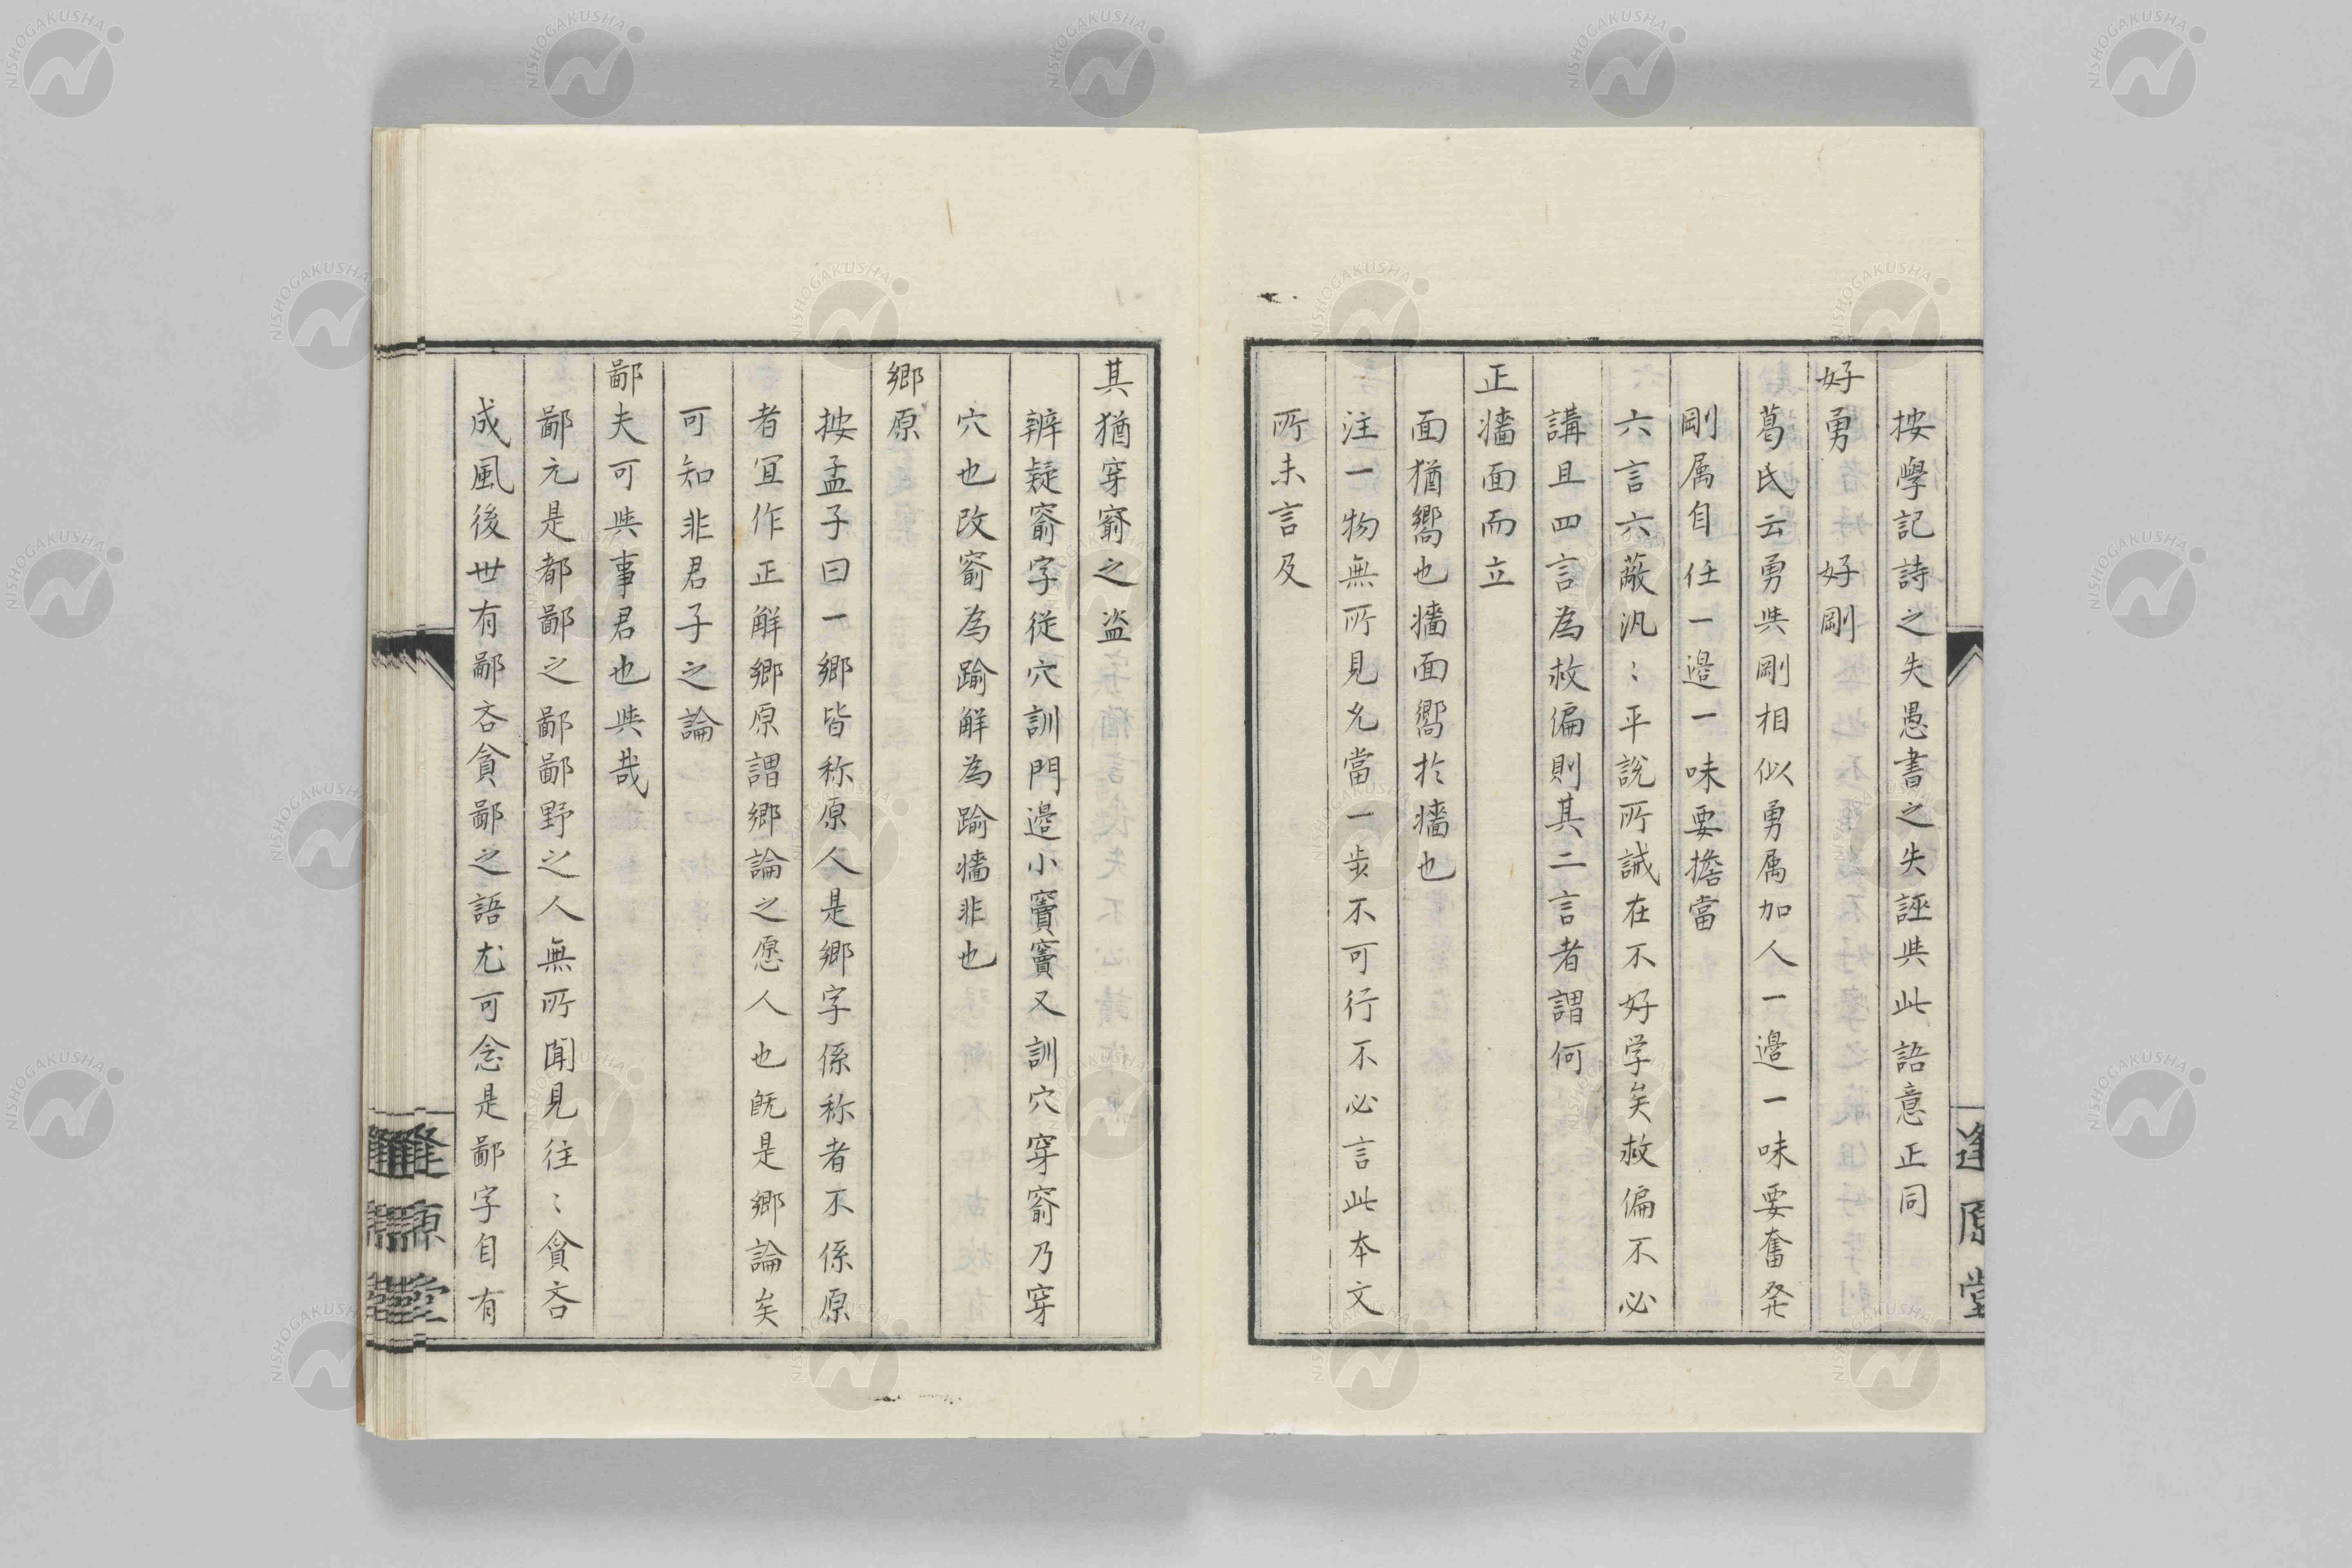 按學記詩之失愚書之失誣與此語意正同
好勇　好剛
葛氏云勇與剛相似勇属加人一邉一味要奮発
剛属自任一邉一味要擔當
六言六蔽汎〻平說所誡在不好学矣救偏不必
講且四言為救偏則其二言者謂何
正墻面而立
面猶嚮也墻面嚮於墻也
注一物無所見允當一步不可行不必言此本文
所未言及
其猶穿窬之盗
辨疑窬字従穴訓門邉小竇竇又訓穴穿窬乃穿
穴也改窬為踰解為踰墻非也
鄉原
按孟子曰一鄉皆称原人是鄉字係称者不係原
者冝作正解鄉原謂鄉論之愿人也既是鄉論矣
可知非君子之論
鄙夫可與事君也與哉
鄙元是都鄙之鄙鄙野之人無所聞見往〻貪吝
成風後世有鄙吝貪鄙之語尤可念是鄙字自有
逢原堂
逢原堂
NISHOGAKUSHA